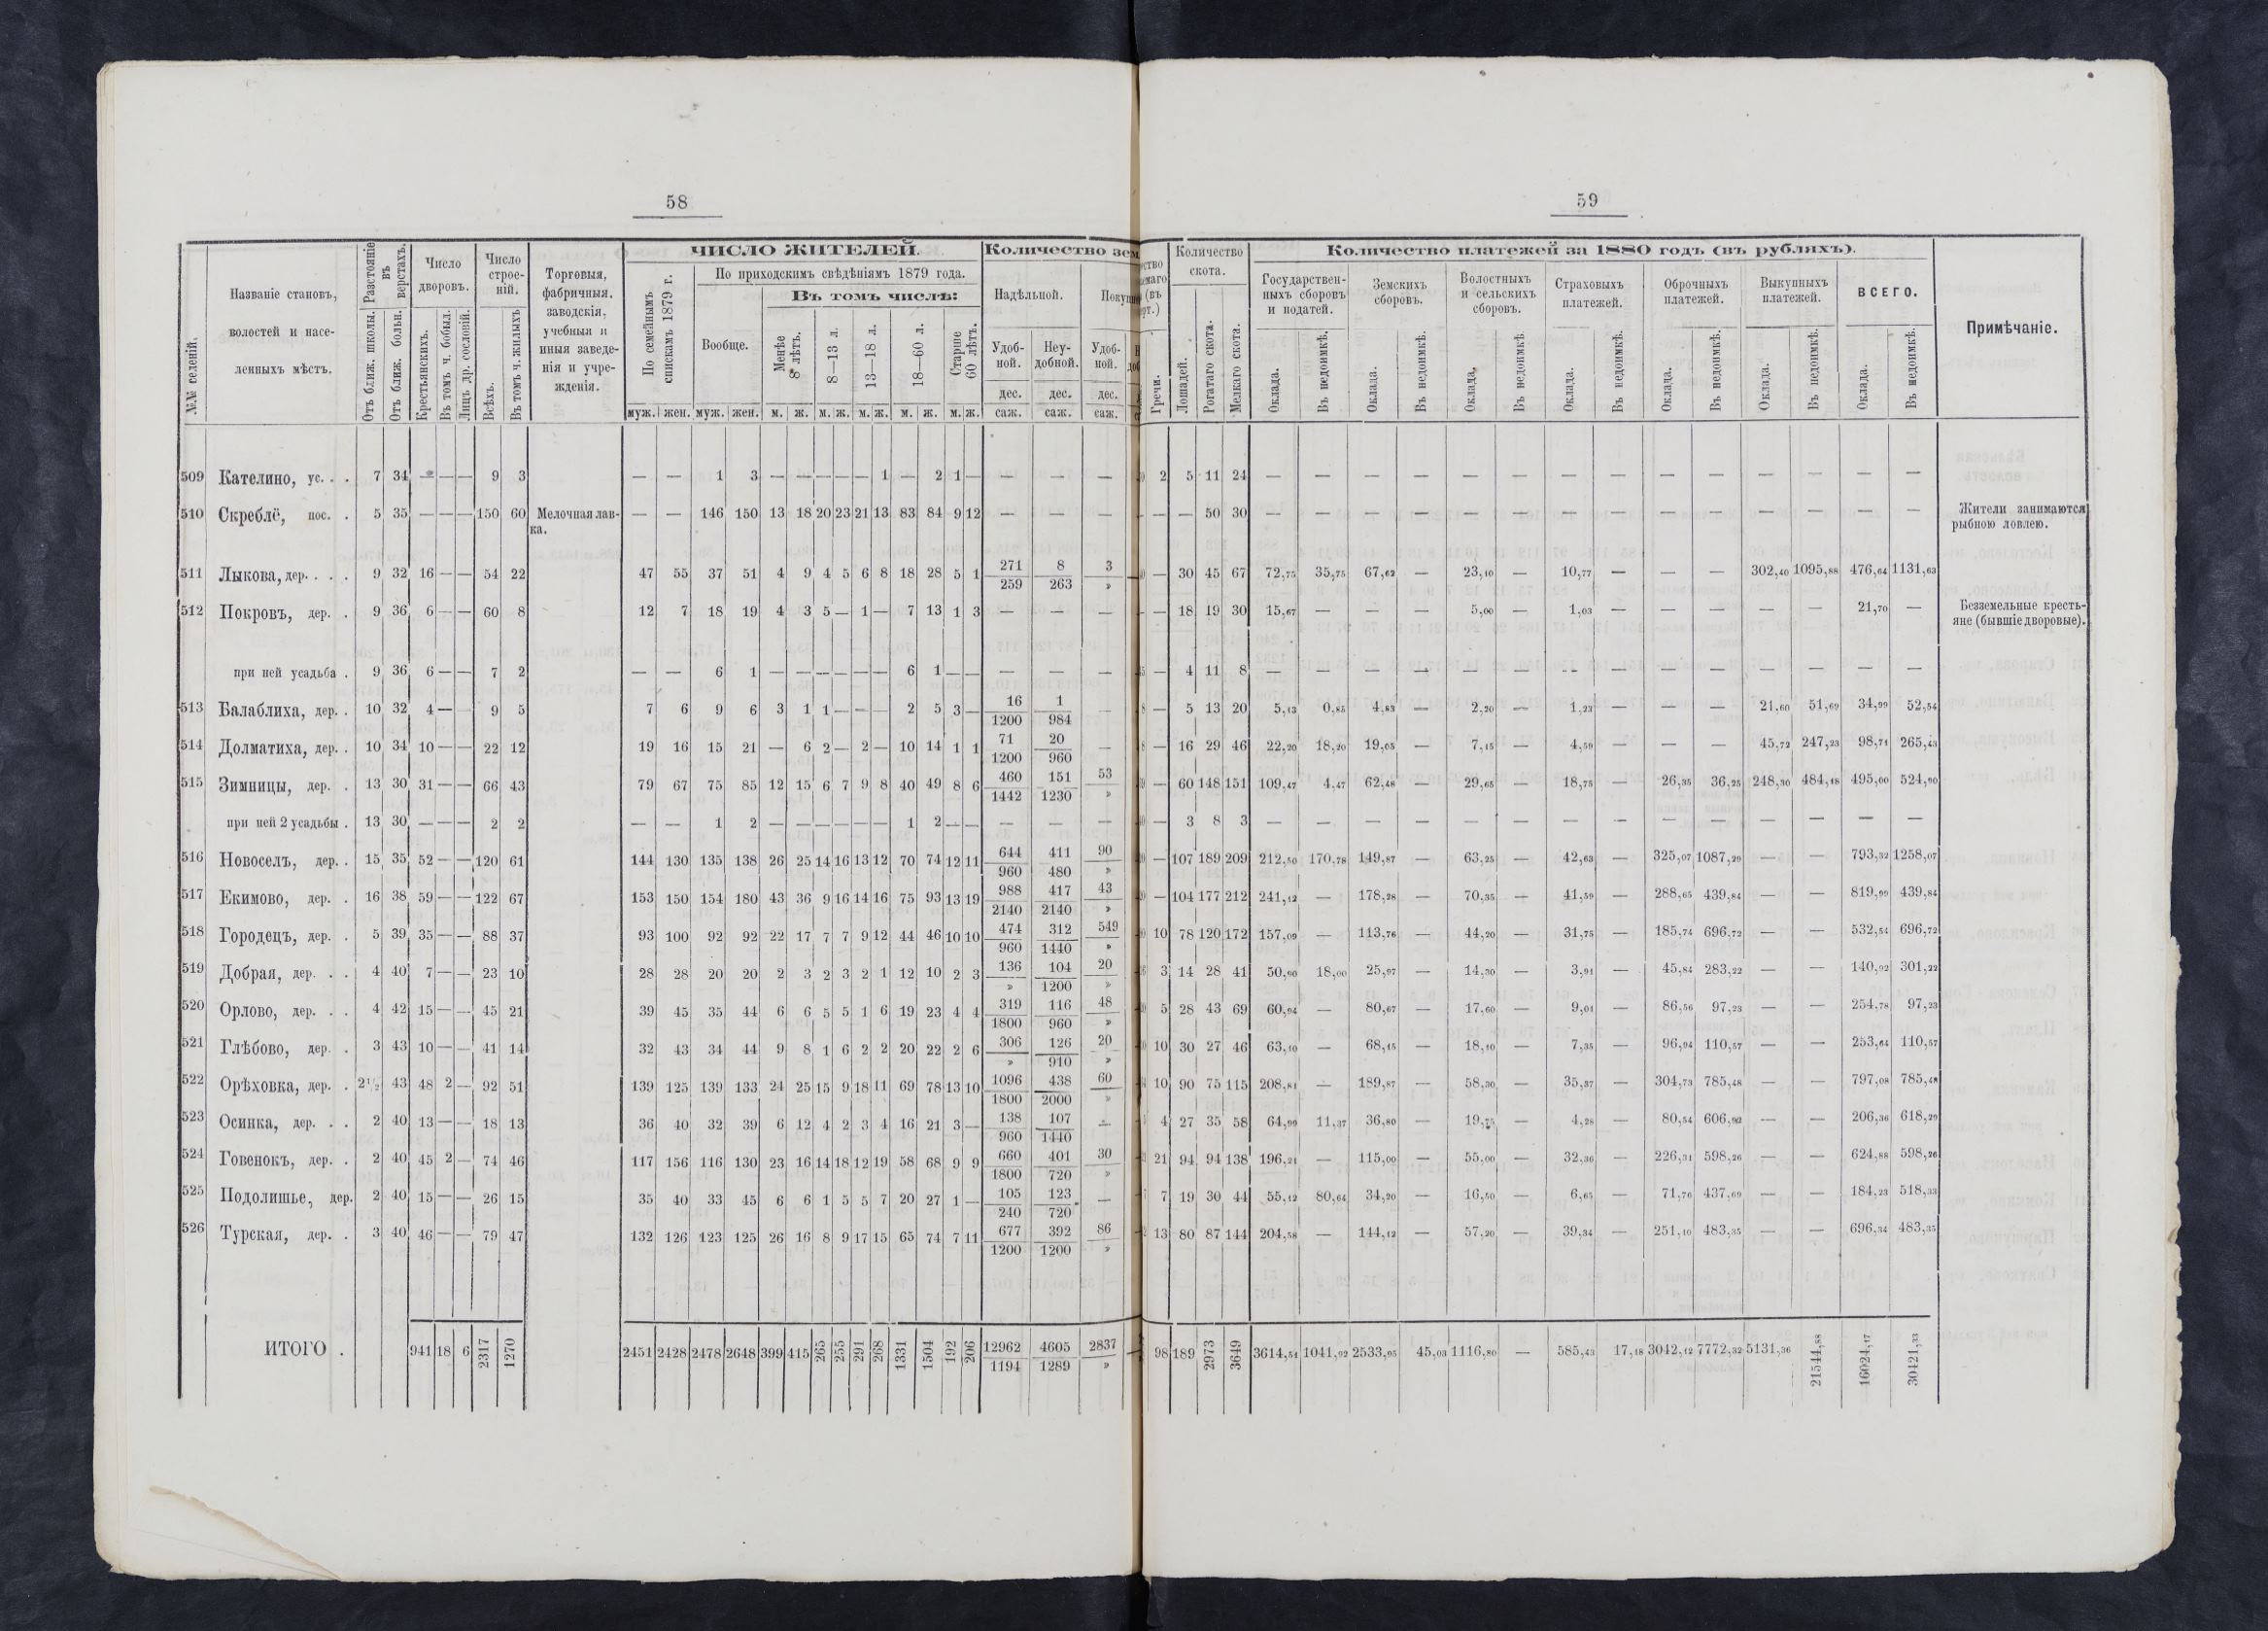 58
59
№№ селеній.
Названіе становъ, волостей и населенныхъ мѣстъ.
Разстояніе въ верстахъ.
Отъ ближ. школы. Отъ ближ. больн.
Число дворовъ.
Крестьянскихъ. Въ томъ ч. бобыл. Лицъ др. сословій.
Число строеній.
Всѣхъ. Въ томъ ч. жилыхъ
Торговыя, фабричныя, заводскія, учебныя и иныя заведенія и учрежденія.
ЧИСЛО ЖИТЕЛЕЙ.
По семейнымъ спискамъ 1879 г.
По приходскимъ свѣдѣніямъ 1879 года.
Вообще.
Въ томъ числѣ:
Менѣе 8 лѣтъ. 8—13 л. 13—18 л. 18—60 л. Старше 60 лѣтъ.
муж. жен. муж. жен. м. ж. м. ж. м. ж. м. ж. м. ж.
Количество зем
Надѣльной.
Удобной. Неудобной. Удобной.
дес. дес. дес.
саж. саж. саж.
Гречи.
Количество скота.
Лошадей. Рогатаго скота. Мелкаго скота.
Количество платежей за 1880 годъ (въ рубляхъ).
Государственныхъ сборовъ и податей. Земскихъ сборовъ. Волостныхъ и сельскихъ сборовъ. Страховыхъ платежей. Оброчныхъ платежей. Выкупныхъ платежей. ВСЕГО.
Оклада. Въ недоимкѣ. Оклада. Въ недоимкѣ. Оклада. Въ недоимкѣ. Оклада. Въ недоимкѣ. Оклада. Въ недоимкѣ. Оклада. Въ недоимкѣ. Оклада. Въ недоимкѣ.
Примѣчаніе.
509 Кателино, ус. . . 7 34 — — — 9 3 — — 1 3 — — — — — 1 — 2 1 — — — — 2 5 11 24 — — — — — — — — — — — — — —
510 Скреблё, пос. . 5 35 — — — 150 60 Мелочная лавка. — — 146 150 13 18 20 23 21 13 83 84 9 12 — — — — — 50 30 — — — — — — — — — — — — — — Жители занимаются рыбною ловлею.
511 Лыкова, дер. . . . 9 32 16 — — 54 22 47 55 37 51 4 9 4 5 6 8 18 28 5 1 271/259 8/263 3/» — 30 45 67 72,75 35,75 67,62 — 23,10 — 10,77 — — — 302,40 1095,88 476,64 1131,63
512 Покровъ, дер. . 9 36 6 — — 60 8 12 7 18 19 4 3 5 — 1 — 7 13 1 3 — — — — 18 19 30 15,67 — — — 5,00 — 1,03 — — — — — 21,70 — Безземельные крестьяне (бывшіе дворовые).
при ней усадьба . 9 36 6 — — 7 2 — — 6 1 — — — — — — 6 1 — — — — — — 4 11 8 — — — — — — — — — — — — — —
513 Балаблиха, дер. . 10 32 4 — 9 5 7 6 9 6 3 1 1 — — — 2 5 3 — 16/1200 1/984 — — 5 13 20 5,13 0,85 4,83 — 2,20 — 1,23 — — — 21,60 51,69 34,99 52,54
514 Долматиха, дер. . 10 34 10 — — 22 12 19 16 15 21 — 6 2 — 2 — 10 14 1 1 71/1200 20/960 — — 16 29 46 22,20 18,20 19,05 — 7,15 — 4,59 — — — 45,72 247,23 98,71 265,43
515 Зимницы, дер. . 13 30 31 — — 66 43 79 67 75 85 12 15 6 7 9 8 40 49 8 6 460/1442 151/1230 53/» — 60 148 151 109,47 4,47 62,48 — 29,65 — 18,75 — 26,35 36,25 248,30 484,18 495,00 524,90
при ней 2 усадьбы . 13 30 — — — 2 2 — — 1 2 — — — — — — 1 2 — — — — — — 3 8 3 — — — — — — — — — — — — — —
516 Новоселъ, дер. . 15 35 52 — — 120 61 144 130 135 138 26 25 14 16 13 12 70 74 12 11 644/960 411/480 90/» — 107 189 209 212,50 170,78 149,87 — 63,25 — 42,63 — 325,07 1087,29 — — 793,32 1258,07
517 Екимово, дер. . 16 38 59 — — 122 67 153 150 154 180 43 36 9 16 14 16 75 93 13 19 988/2140 417/2140 43/» — 104 177 212 241,12 — 178,28 — 70,35 — 41,59 — 288,65 439,84 — — 819,99 439,84
518 Городецъ, дер. . 5 39 35 — — 88 37 93 100 92 92 22 17 7 7 9 12 44 46 10 10 474/960 312/1440 549/» 10 78 120 172 157,09 — 113,76 — 44,20 — 31,75 — 185,74 696,72 — — 532,54 696,72
519 Добрая, дер. . . 4 40 7 — — 23 10 28 28 20 20 2 3 2 3 2 1 12 10 2 3 136/» 104/1200 20/» 3 14 28 41 50,90 18,00 25,97 — 14,30 — 3,91 — 45,84 283,22 — — 140,92 301,22
520 Орлово, дер. . . 4 42 15 — — 45 21 39 45 35 44 6 6 5 5 1 6 19 23 4 4 319/1800 116/960 48/» 5 28 43 69 60,94 — 80,67 — 17,60 — 9,01 — 86,56 97,23 — — 254,78 97,23
521 Глѣбово, дер. . 3 43 10 — — 41 14 32 43 34 44 9 8 1 6 2 2 20 22 2 6 306/» 126/910 20/» 10 30 27 46 63,10 — 68,15 — 18,10 — 7,35 — 96,94 110,57 — — 253,64 110,57
522 Орѣховка, дер. . 2½ 43 48 2 — 92 51 139 125 139 133 24 25 15 9 18 11 69 78 13 10 1096/1800 438/2000 60/» 10 90 75 115 208,81 — 189,87 — 58,30 — 35,37 — 304,73 785,48 — — 797,08 785,48
523 Осинка, дер. . . 2 40 13 — — 18 13 36 40 32 39 6 12 4 2 3 4 16 21 3 — 138/960 107/1440 — 4 27 35 58 64,99 11,37 36,80 — 19,75 — 4,28 — 80,54 606,92 — — 206,36 618,29
524 Говенокъ, дер. . 2 40 45 2 — 74 46 117 156 116 130 23 16 14 18 12 19 58 68 9 9 660/1800 401/720 30/» 21 94 94 138 196,21 — 115,00 — 55,00 — 32,36 — 226,31 598,26 — — 624,88 598,26
525 Подолишье, дер. 2 40 15 — — 26 15 35 40 33 45 6 6 1 5 5 7 20 27 1 — 105/240 123/720 — 7 19 30 44 55,12 80,64 34,20 — 16,50 — 6,65 — 71,76 437,69 — — 184,23 518,33
526 Турская, дер. . 3 40 46 — — 79 47 132 126 123 125 26 16 8 9 17 15 65 74 7 11 677/1200 392/1200 86/» 13 80 87 144 204,58 — 144,12 — 57,20 — 39,34 — 251,10 483,35 — — 696,34 483,35
ИТОГО . 941 18 6 2317 1270 2451 2428 2478 2648 399 415 265 255 291 268 1331 1504 192 206 12962/1194 4605/1289 2837/» 98 189 2973 3649 3614,54 1041,92 2533,95 45,03 1116,80 — 585,43 17,18 3042,12 7772,32 5131,36 21544,88 16024,17 30421,33